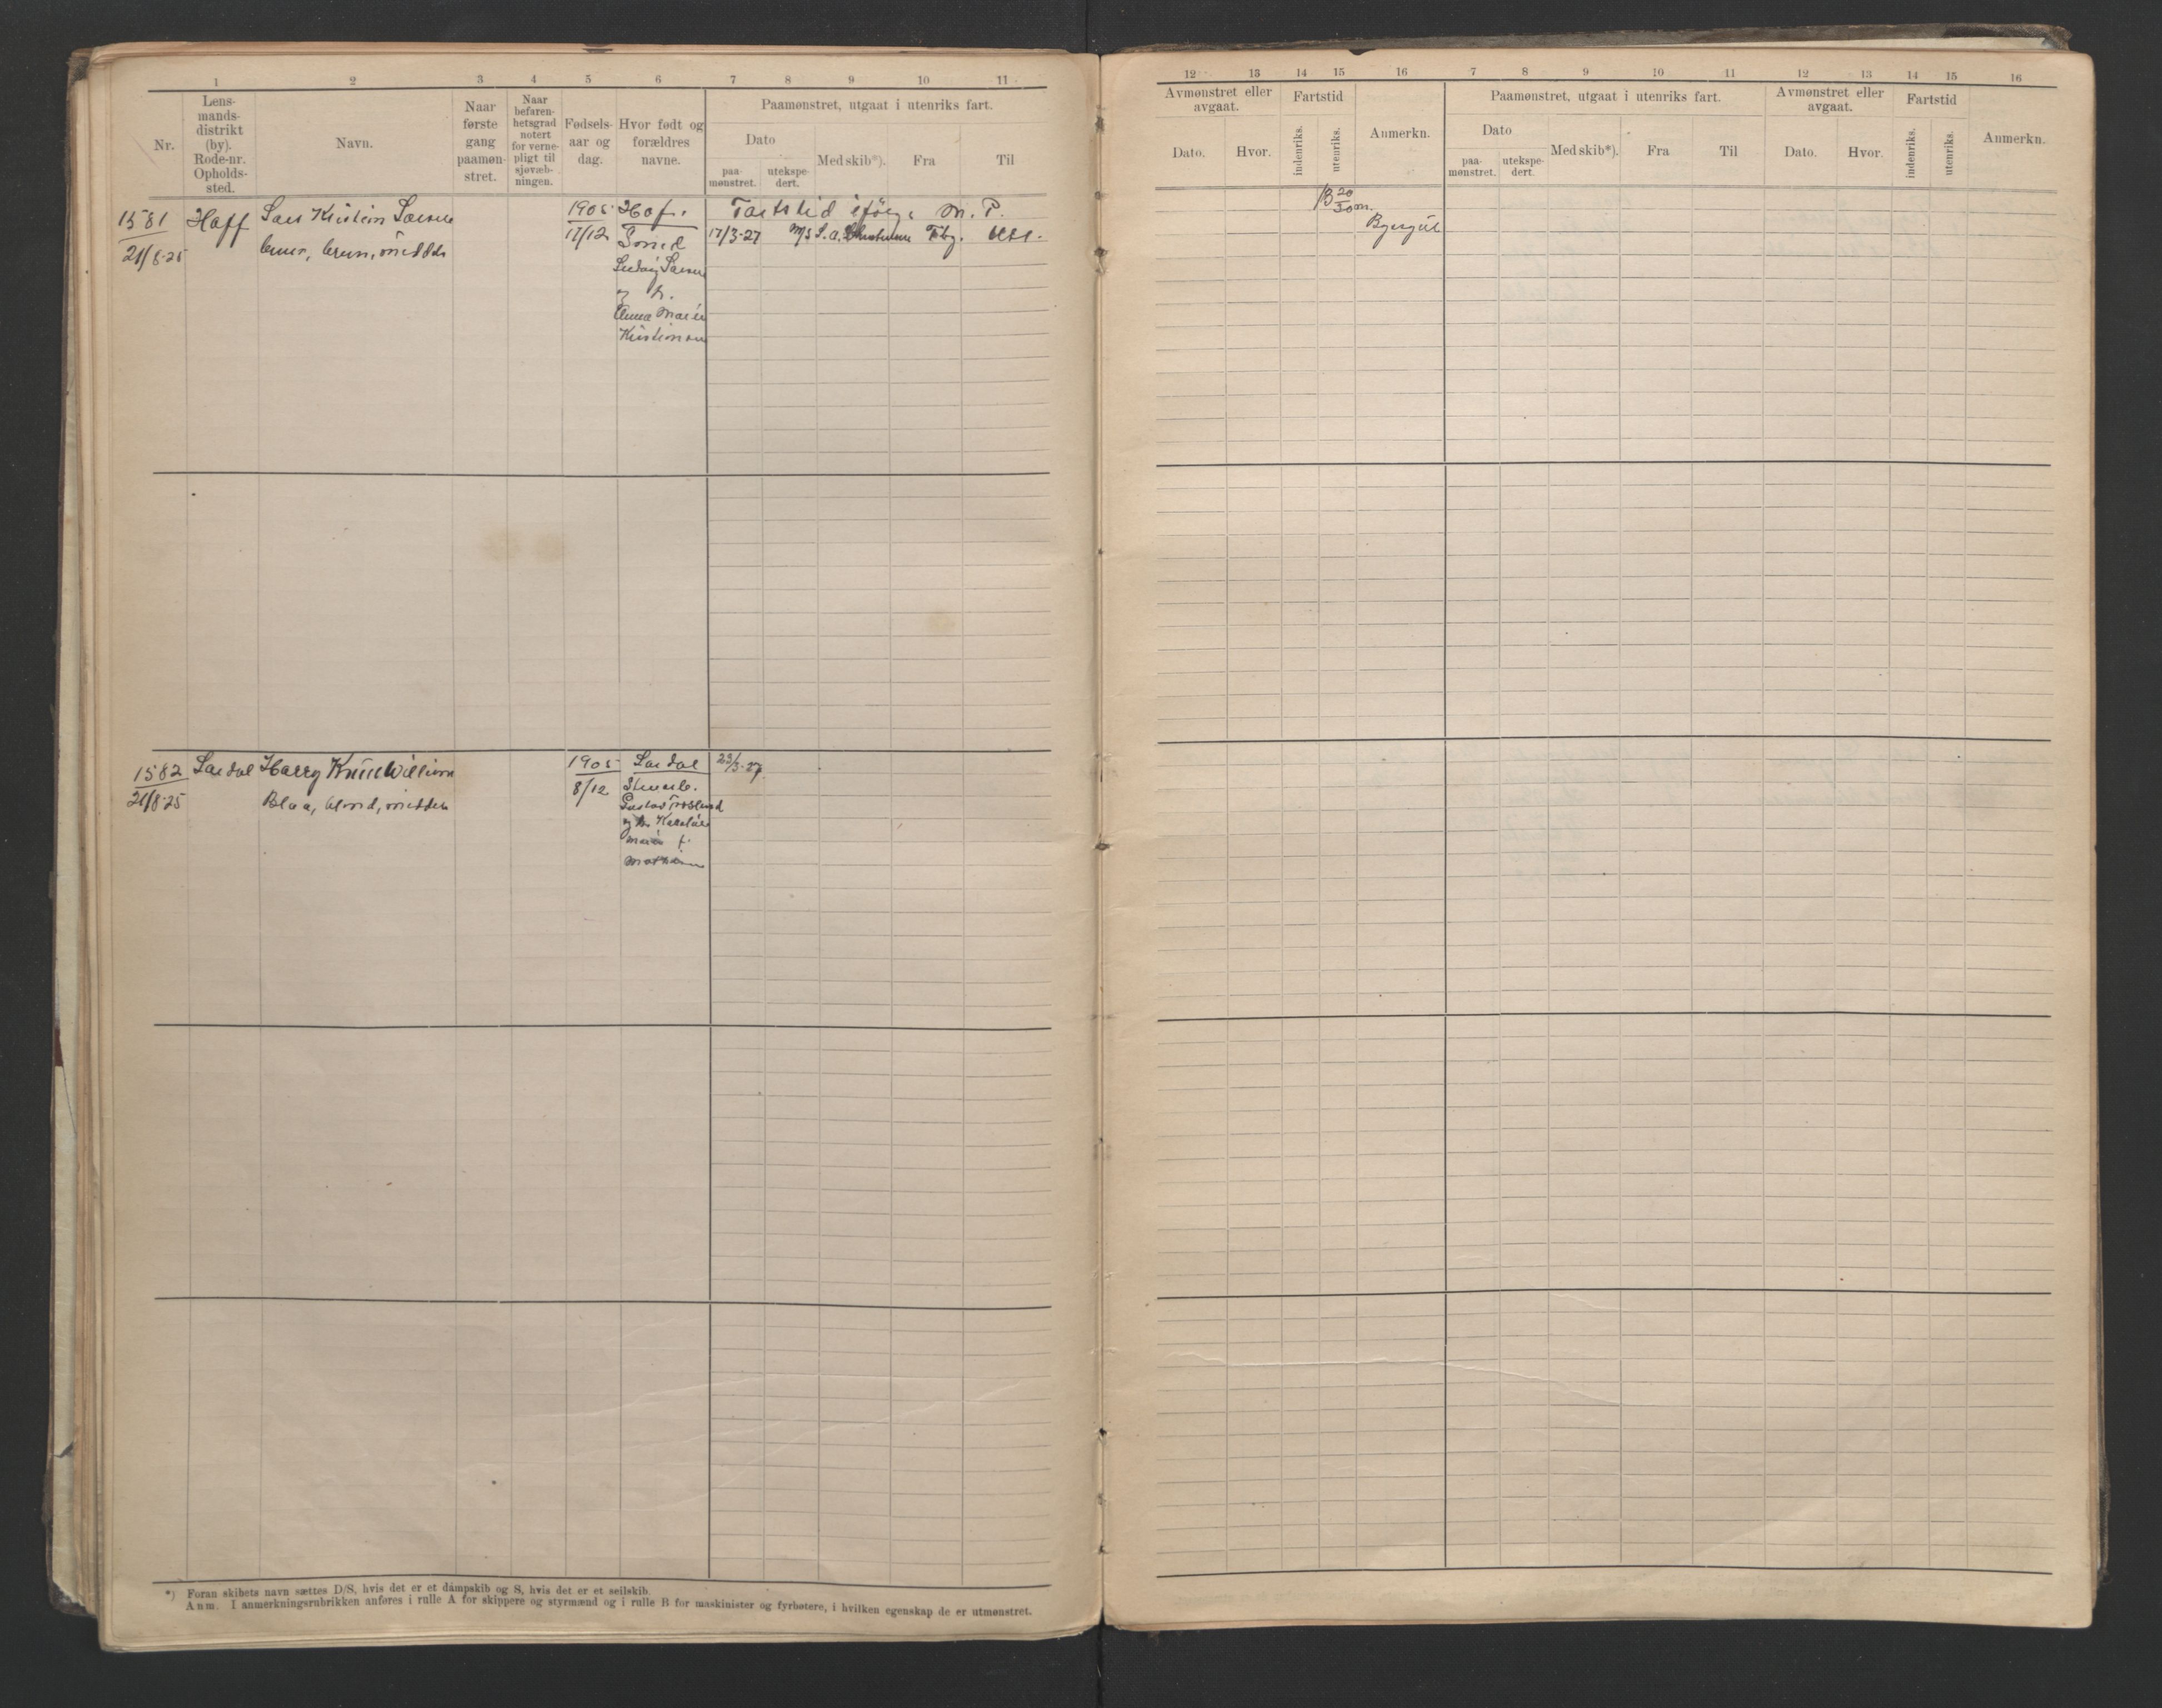 1 2 3 4 5 6 7 8 9 10 11
Nr.
Lens-
mands-
distrikt
(by).
Rode-nr.
Opholds-
sted.
Navn.
Naar
første
gang
paamøn-
stret.
Naar
befaren-
hetsgrad
notert
for verne-
pligt til
sjøvæb-
ningen.
Fødsels-
aar og
dag.
Hvor født og
forældres
navne.
Paamønstret, utgaat i utenriks fart.
Dato
paa-
mønstret.
utekspe-
dert.
Med skib*).
Fra
Til
1581
21/8-25
Hoff
Lars Kristian Larsen
brun, middels
1905
17/12
Hof.
Ludvig Larsen
og h.
Anna Marie
Kristiansen
Fartstid ifølge M. P.
17/3-27 M/S Tbg. Utl.
1582
21/8-25
Lardal
Harry William
Blaa, blond, middels
1905
8/12
Lardal
Gustav
og h.
Marie f.
23/3-27
*) Foran skibets navn sættes D/S, hvis det er et dampskib og S, hvis det er et seilskib.
Anm. I anmerkningsrubrikken anføres i rulle A for skippere og styrmænd og i rulle B for maskinister og fyrbøtere, i hvilken egenskap de er utmønstret.
12 13 14 15 16 7 8 9 10 11 12 13 14 15 16
Avmønstret eller
avgaat.
Dato.
Hvor.
Fartstid
indenriks.
utenriks.
Anmerkn.
Paamønstret, utgaat i utenriks fart.
Dato
paa-
mønstret.
utekspe-
dert.
Med skib*).
Fra
Til
Avmønstret eller
avgaat.
Dato.
Hvor.
Fartstid
indenriks.
utenriks.
Anmerkn.
20/30 m.